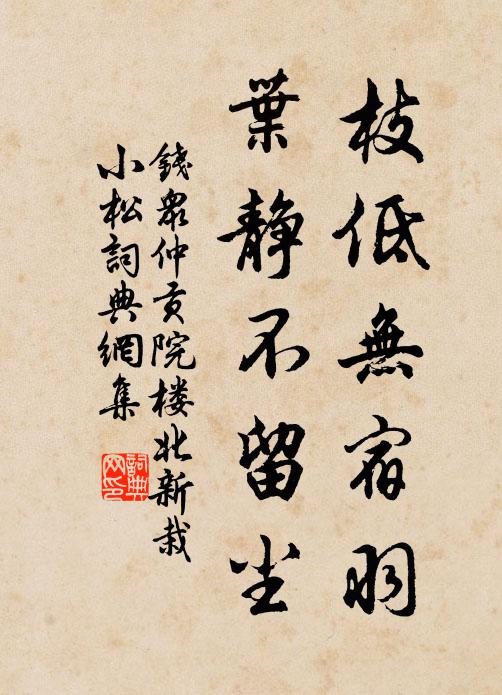 枝低無宿羽
葉静不留尘
錢衆仲贡院楼北新栽
小松詞典網集
詞典网印